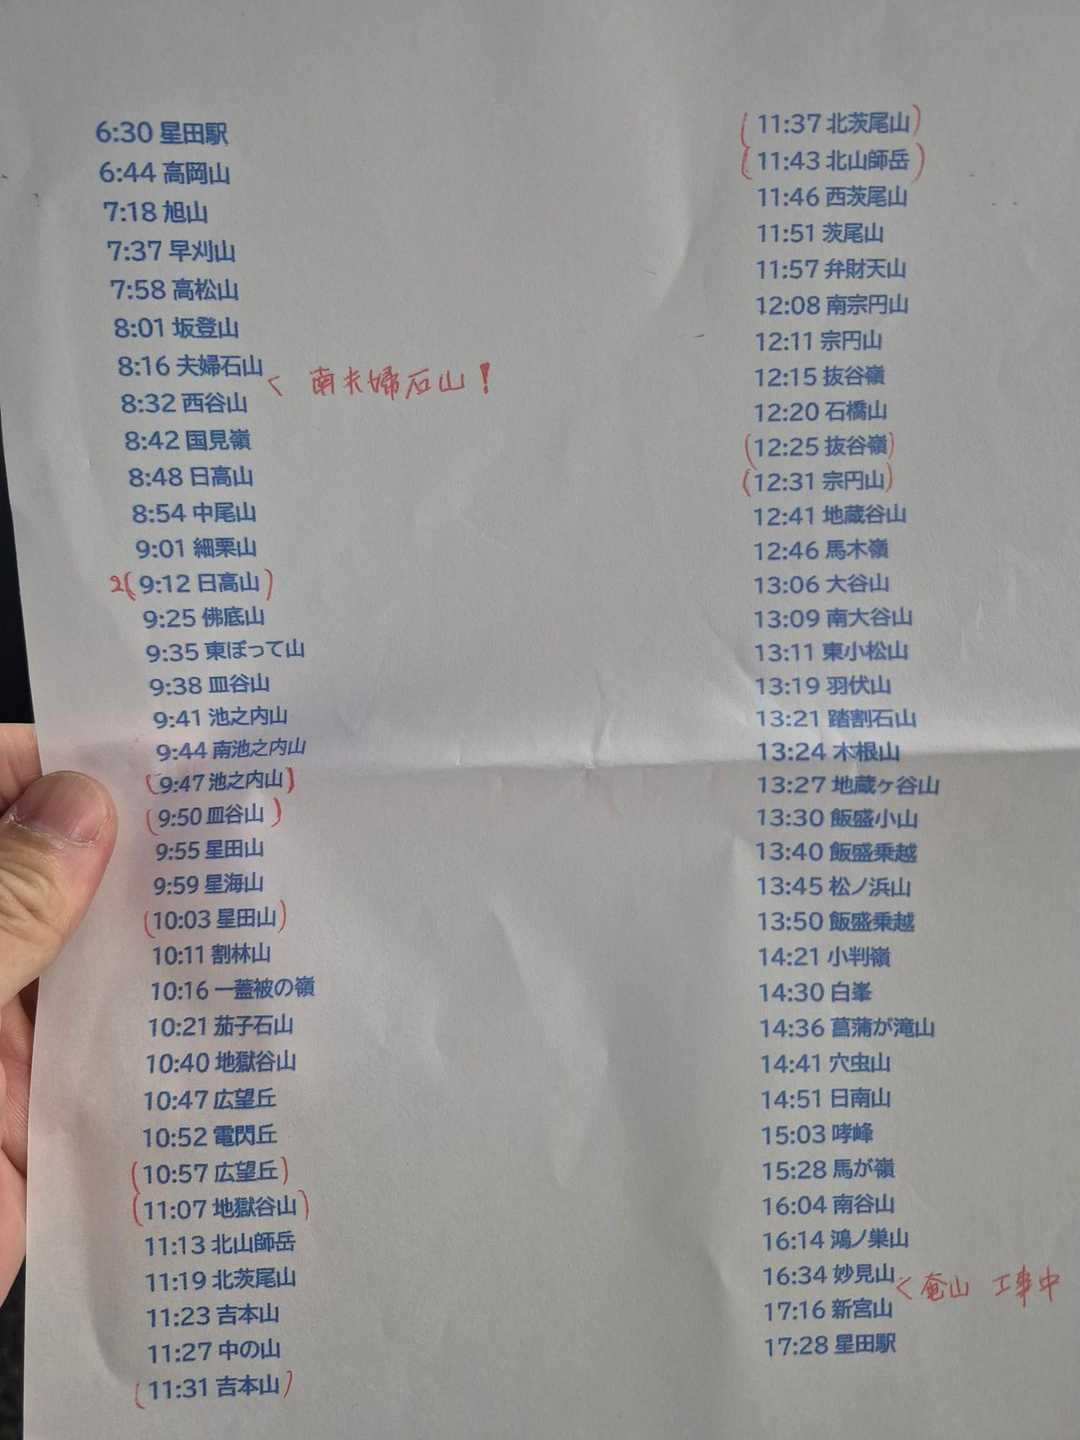 6:30 星田駅
6:44 高岡山
7:18 旭山
7:37 早刈山
7:58 高松山
8:01 坂登山
8:16 夫婦石山
< 南夫婦石山！
8:32 西谷山
8:42 国見嶺
8:48 日高山
8:54 中尾山
9:01 細栗山
2(9:12 日高山)
9:25 佛底山
9:35 東ぼって山
9:38 皿谷山
9:41 池之内山
9:44 南池之内山
(9:47 池之内山)
(9:50 皿谷山)
9:55 星田山
9:59 星海山
(10:03 星田山)
10:11 割林山
10:16 一蓋被の嶺
10:21 茄子石山
10:40 地獄谷山
10:47 広望丘
10:52 電閃丘
(10:57 広望丘)
(11:07 地獄谷山)
11:13 北山師岳
11:19 北茨尾山
11:23 吉本山
11:27 中の山
(11:31 吉本山)
(11:37 北茨尾山)
(11:43 北山師岳)
11:46 西茨尾山
11:51 茨尾山
11:57 弁財天山
12:08 南宗円山
12:11 宗円山
12:15 抜谷嶺
12:20 石橋山
(12:25 抜谷嶺)
(12:31 宗円山)
12:41 地蔵谷山
12:46 馬木嶺
13:06 大谷山
13:09 南大谷山
13:11 東小松山
13:19 羽伏山
13:21 踏割石山
13:24 木根山
13:27 地蔵ヶ谷山
13:30 飯盛小山
13:40 飯盛乗越
13:45 松ノ浜山
13:50 飯盛乗越
14:21 小判嶺
14:30 白峯
14:36 菖蒲が滝山
14:41 穴虫山
14:51 日南山
15:03 哮峰
15:28 馬が嶺
16:04 南谷山
16:14 鴻ノ巣山
16:34 妙見山
< 奄山 工事中
17:16 新宮山
17:28 星田駅